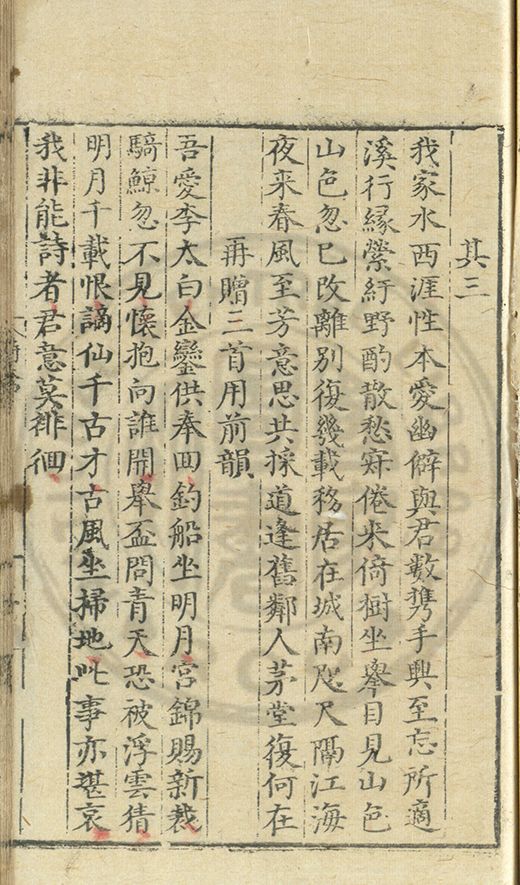 其三
我家水西涯性本愛幽僻與君數携手興至忘所適
溪行緣縈紆野酌散愁寂倦来倚樹坐舉目見山色
山色忽已改離別復幾載移居在城南咫尺隔江海
夜来春風至芳意思共採道逢舊鄰人茅堂復何在
再贈三首用前韻
吾愛李太白金鑾供奉回釣船坐明月宮錦賜新裁
騎鯨忽不見懷抱向誰開舉盃問青天恐被浮雲猜
明月千載恨謫仙千古才古風坐掃地此事亦堪哀
我非能詩者君意莫徘徊